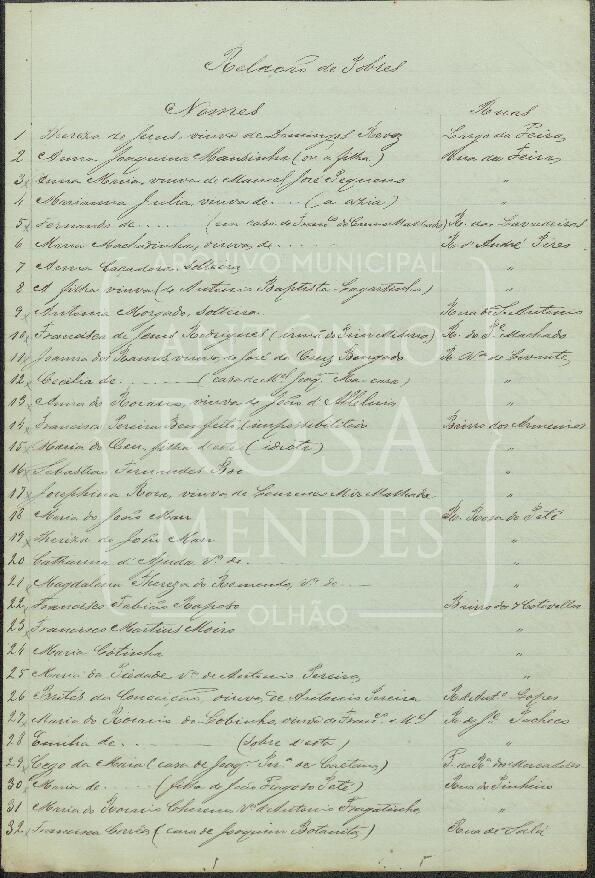 Relação de Pobres
Nomes Ruas
1 Thereza de Jesus, viuva de Domingos Largo da Feira
2 Anna Joaquina Mansinha (ou a filha) Rua da Feira
3 Anna Maria, viuva de Manoel José Pequeno "
4 Marianna Julia, viuva de (a azia) "
5 Fernando de (em casa de da Cruz Machado) R. dos Lavadeiros
6 Maria Machadinha, viuva, de R. d'André Pires
7 Anna Caçadora, Solteira "
8 A filha viuva (de Antonio Baptista Lagartinho) "
9 Antonia Morgado, Solteira Rua de S. Antonio
10 Francisca de Jesus Rodrigues (irmã do ) R. do Pe. Machado
11 Joanna dos Ramos, viuva, de José da Cruz R. Nª do Levante
12 Cecilia de (casa de Mel Joaqm ) "
13 Anna do Rosario, viuva de João d'Alleluia "
14 Francisco Pereira (impossibilitado) Bairro dos Armeiros
15 Maria do Ceu, filha d'este (idiota) "
16 Sebastião Fernandes "
17 Josephina Rosa, viuva de Lourenço Mir Malhado "
18 Maria de João Marr R. Rosa do Peté
19 Thereza de João Marr "
20 Catharina d'Ajuda Vª de "
21 Magdalena Thereza do Rom Vª de "
22 Francisco Fabião Raposo Bairro dos 7 Cotovellos
23 Francisco Martins Moiro "
24 Maria Cotinha "
25 Maria da Piedade Vª de Antonio Pereira "
26 Brites da Conceição, viuva, de Antonio Pereira R. Antº Lopes
27 Maria do Rosario do Lobinho, viuva de R. de Jº Pacheco
28 de (Sobre d'esta) "
29 Cego da Maia (casa de Joaqm de Caetano) dos Mercadores
30 Maria de (filha de João Peté) Rua do Pinheiro
31 Maria do Rosario Vª d'Antonio "
32 Francisca (casa de Joaquim Botanito) Rua de
ARCHIVO MUNICIPAL
ANTÓNIO
ROSA
MENDES
OLHÃO